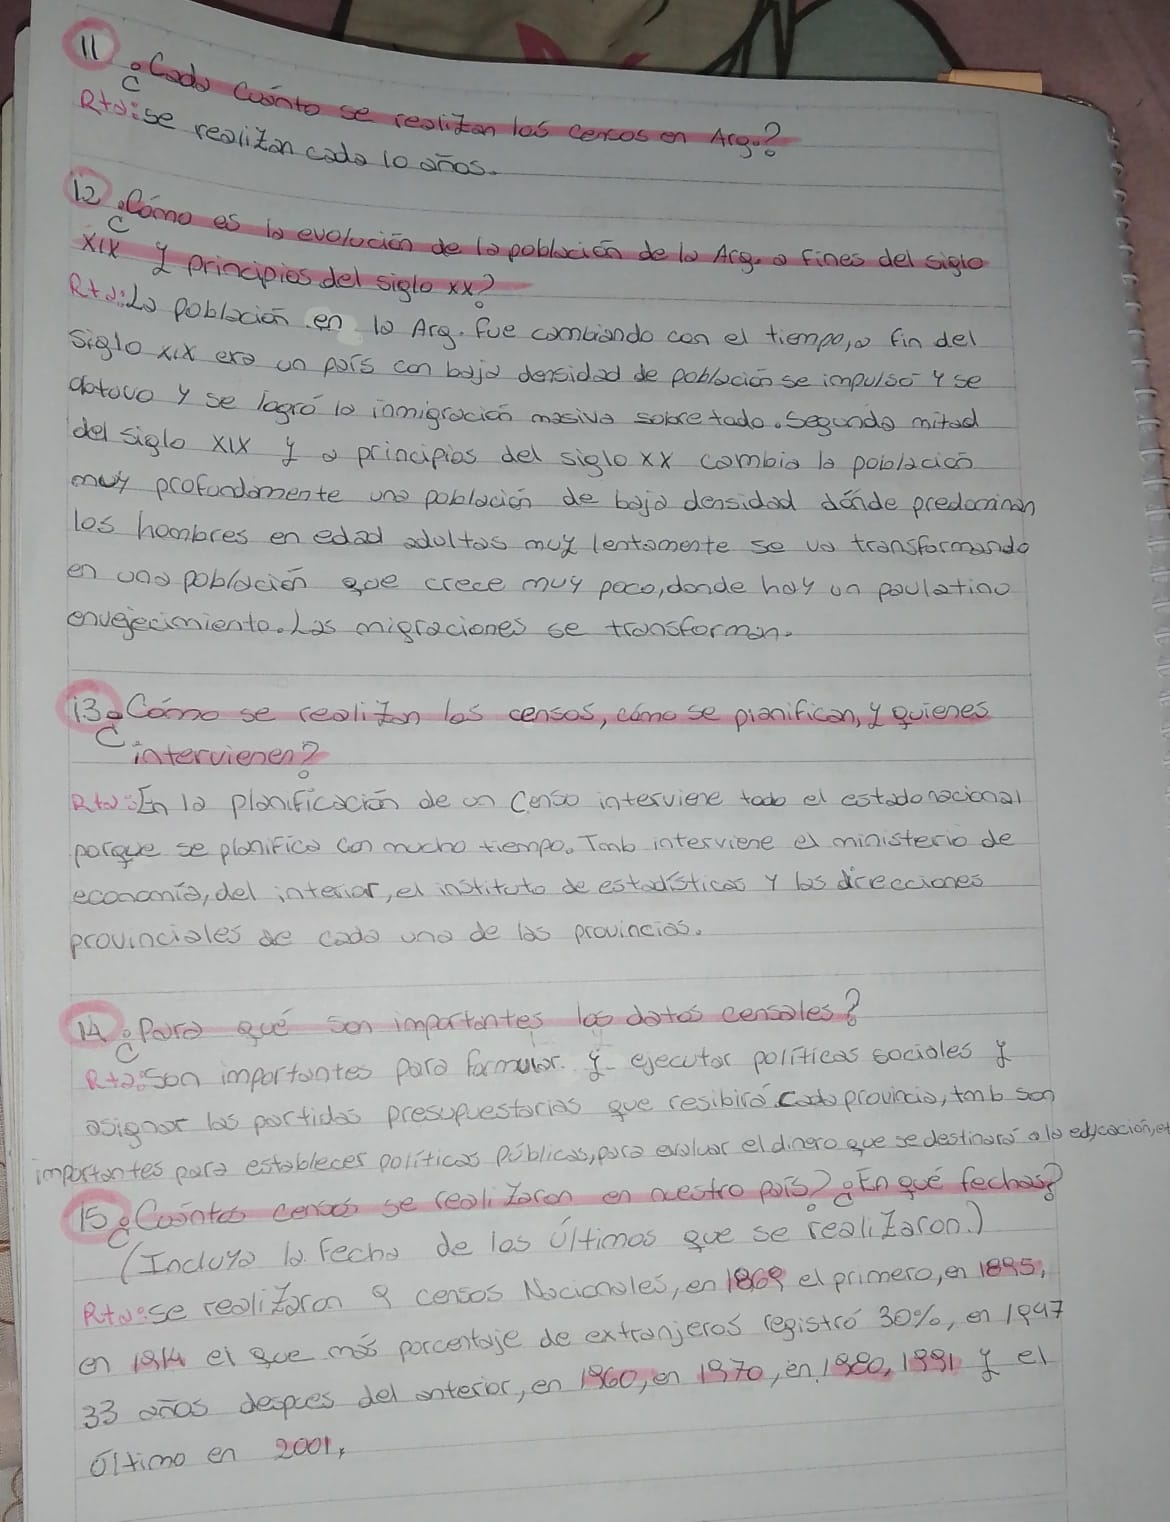 11 ¿Cada Cuánto se realizan los cencos en Arg.?
Rta: se realizan cada 10 años.
12 ¿Cómo es la evolución de la población de la Arg. a fines del siglo
XIX y principios del siglo XX?
Rta: La población en la Arg. fue cambiando con el tiempo, a fin del
Siglo XIX era un país con baja densidad de población se impulsó y se
obtuvo y se logró la inmigración masiva sobre todo. Segunda mitad
del siglo XIX y a principios del siglo XX cambia la población
muy profundamente una población de baja densidad dónde predominan
los hombres en edad adultas muy lentamente se va transformando
en una población que crece muy poco, donde hay un paulatino
envejecimiento. Las migraciones se transforman.
13 ¿Cómo se realizan los censos, cómo se planifican, y quienes
intervienen?
Rta: En la planificación de un Censo interviene todo el estado nacional
porque se planifica con mucho tiempo. Tmb interviene el ministerio de
economía, del interior, el instituto de estadísticas y las direcciones
provinciales de cada una de las provincias.
14 ¿Para qué son importantes los datos censales?
Rta: Son importantes para formular. y ejecutar políticas sociales y
asignar las partidas presupuestarias que resibirá cada provincia, tmb son
importantes para establecer políticas públicas, para evaluar el dinero que se destinará a la educación, et
15 ¿Cuántos censos se realizaron en nuestro país? ¿En qué fechas?
(Incluya la fecha de los últimos que se realizaron.)
Rta: se realizaron 9 censos Nacionales, en 1869 el primero, en 1895,
en 1914 el que más porcentaje de extranjeros registró 30%, en 1947
33 años despues del anterior, en 1960, en 1970, en 1980, 1991 y el
último en 2001,